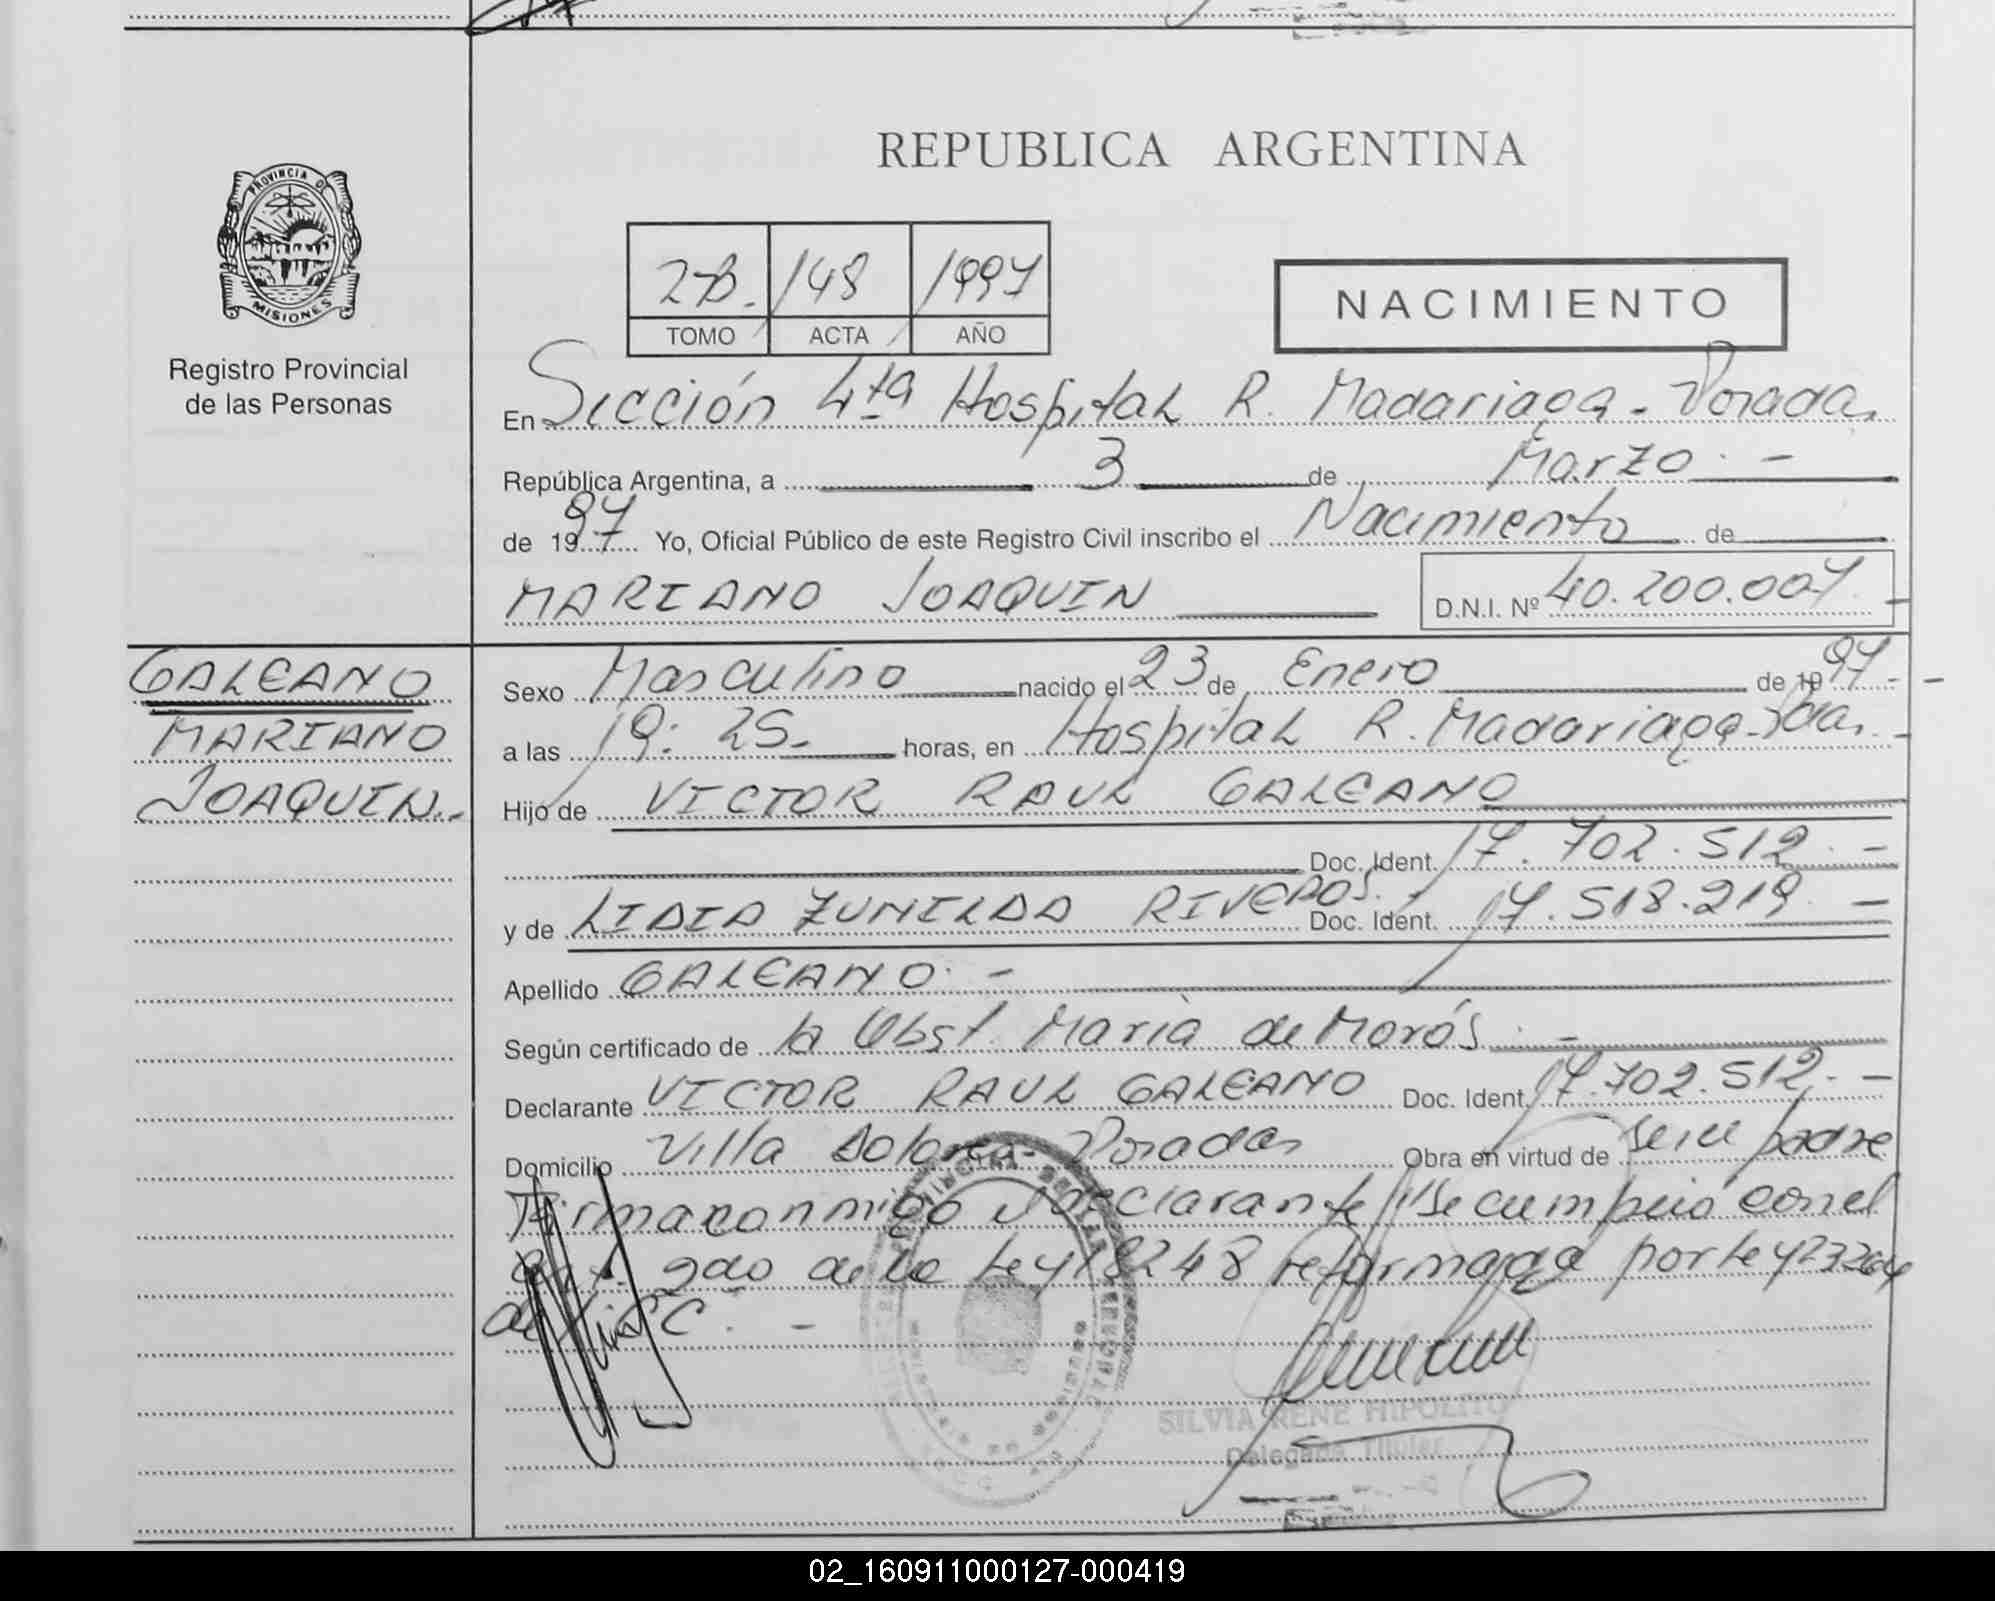 REPUBLICA ARGENTINA
PROVINCIA DE
MISIONES
Registro Provincial
de las Personas
2-B. 148 1997
TOMO ACTA AÑO
NACIMIENTO
En Sección 4ta Hospital R. Madariaga - Posadas
República Argentina, a 3 de Marzo . -
de 1997 Yo, Oficial Público de este Registro Civil inscribo el Nacimiento de
MARIANO JOAQUIN D.N.I. Nº 40.200.007. -
GALEANO
MARIANO
JOAQUIN.-
Sexo Masculino nacido el 23 de Enero de 1997. -
a las 19:25. horas, en Hospital R. Madariaga - Pdas. -
Hijo de VICTOR RAUL GALEANO
Doc. Ident. 17.702.512. -
y de LIDIA ZUNILDA RIVEROS. Doc. Ident. 17.518.219. -
Apellido GALEANO. -
Según certificado de la Obst. María de Morós. -
Declarante VICTOR RAUL GALEANO Doc. Ident. 17.702.512. -
Domicilio Villa Dolores - Posadas Obra en virtud de ser el padre
Firma conmigo el declarante // Se cumplió con el
Art. 2do de la Ley 18248 reformada por Ley 23264
SILVIA RENE HIPOLITO
Delegada Titular
02_160911000127-000419